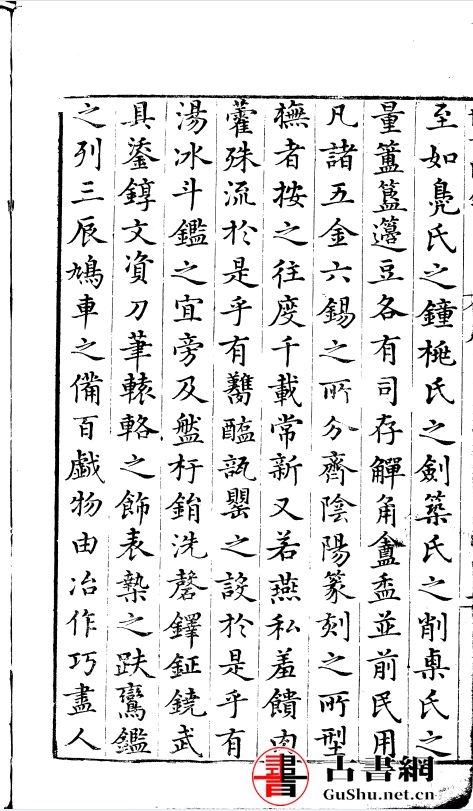 至如鳧氏之鐘桃氏之劍築氏之削㮚氏之
量簠簋籩豆各有司存觶角盦盉並前民用
凡諸五金六錫之所分齊陰陽篆刻之所型
橅者按之往度千載常新又若燕私羞饋肉
藿殊流於是乎有鐫醢瓿罌之設於是乎有
湯冰斗鑑之宜旁及盤杅銷洗磬鐸鉦鐃武
具鋈錞文資刀筆轅輅之飾表槷之趺鸞鑑
之列三辰鳩車之備百戲物由冶作巧盡人
書 古書網
GuShu.net.cn